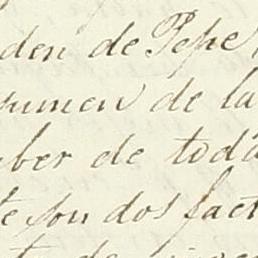 den de Pepe
sumen de la
ber de toda
te son dos fact